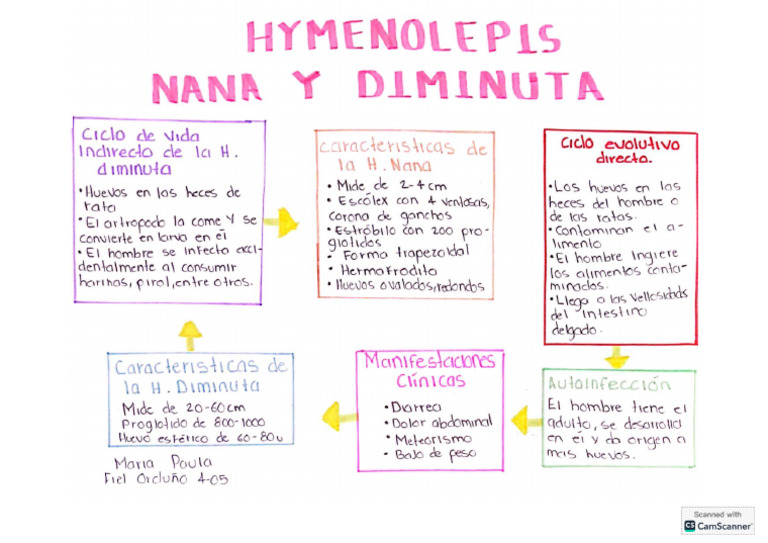 HYMENOLEPIS
NANA Y DIMINUTA
Ciclo de vida
Indirecto de la H.
diminuta
• Huevos en las heces de
rata
• El artropodo la come Y se
convierte en larva en él
• El hombre se infecta acci-
dentalmente al consumir
harinas, pirol, entre otros.
Caracteristicas de
la H. Nana
• Mide de 2-4 cm
• Escólex con 4 ventosas,
corona de ganchos
• Estróbilo con 200 pro-
glotidos
• Forma trapezoidal
• Hermafrodita
• Huevos ovalados, redondos
Ciclo evolutivo
directo.
• Los huevos en las
heces del hombre o
de las ratas.
• Contaminan el a-
limento
• El hombre Ingiere
los alimentos conta-
minados.
• Llega a las vellosidads
del intestino
delgado.
Caracteristicas de
la H. Diminuta
Mide de 20-60cm
Proglotido de 800-1000
Huevo esférico de 60-80u
Manifestaciones
Clínicas
• Diarrea
• Dolor abdominal
• Meteorismo
• Baja de peso
Autoinfección
El hombre tiene el
adulto, se desarrolla
en él y da origen a
mas huevos.
Maria Paula
Fiel Orduño 4-05
Scanned with
CS CamScanner